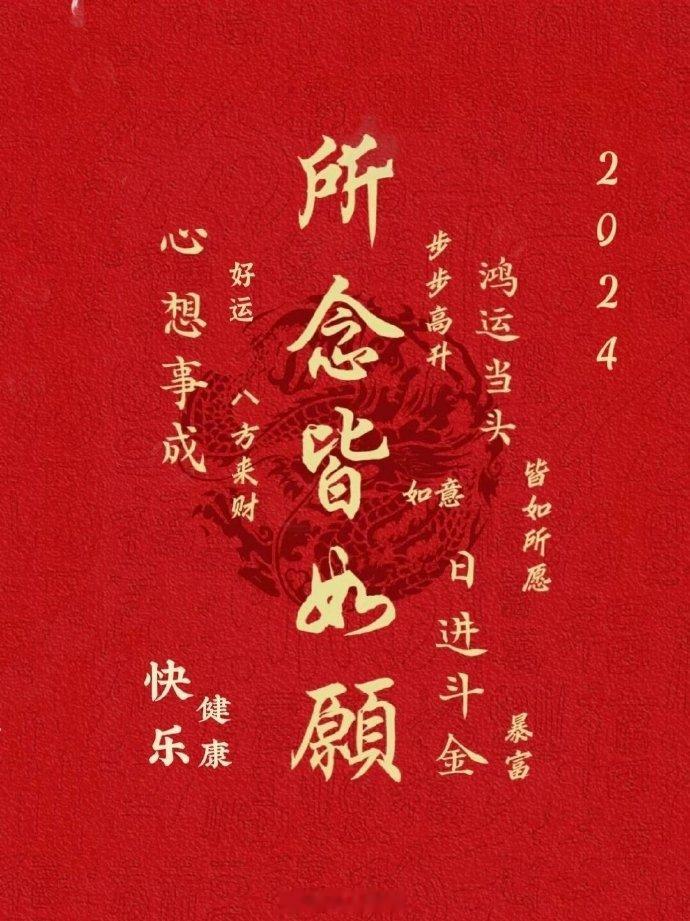 2024
鸿运当头
皆如所愿
步步高升
如意
日进斗金
暴富
所念皆如願
好运
八方来财
心想事成
健康
快乐